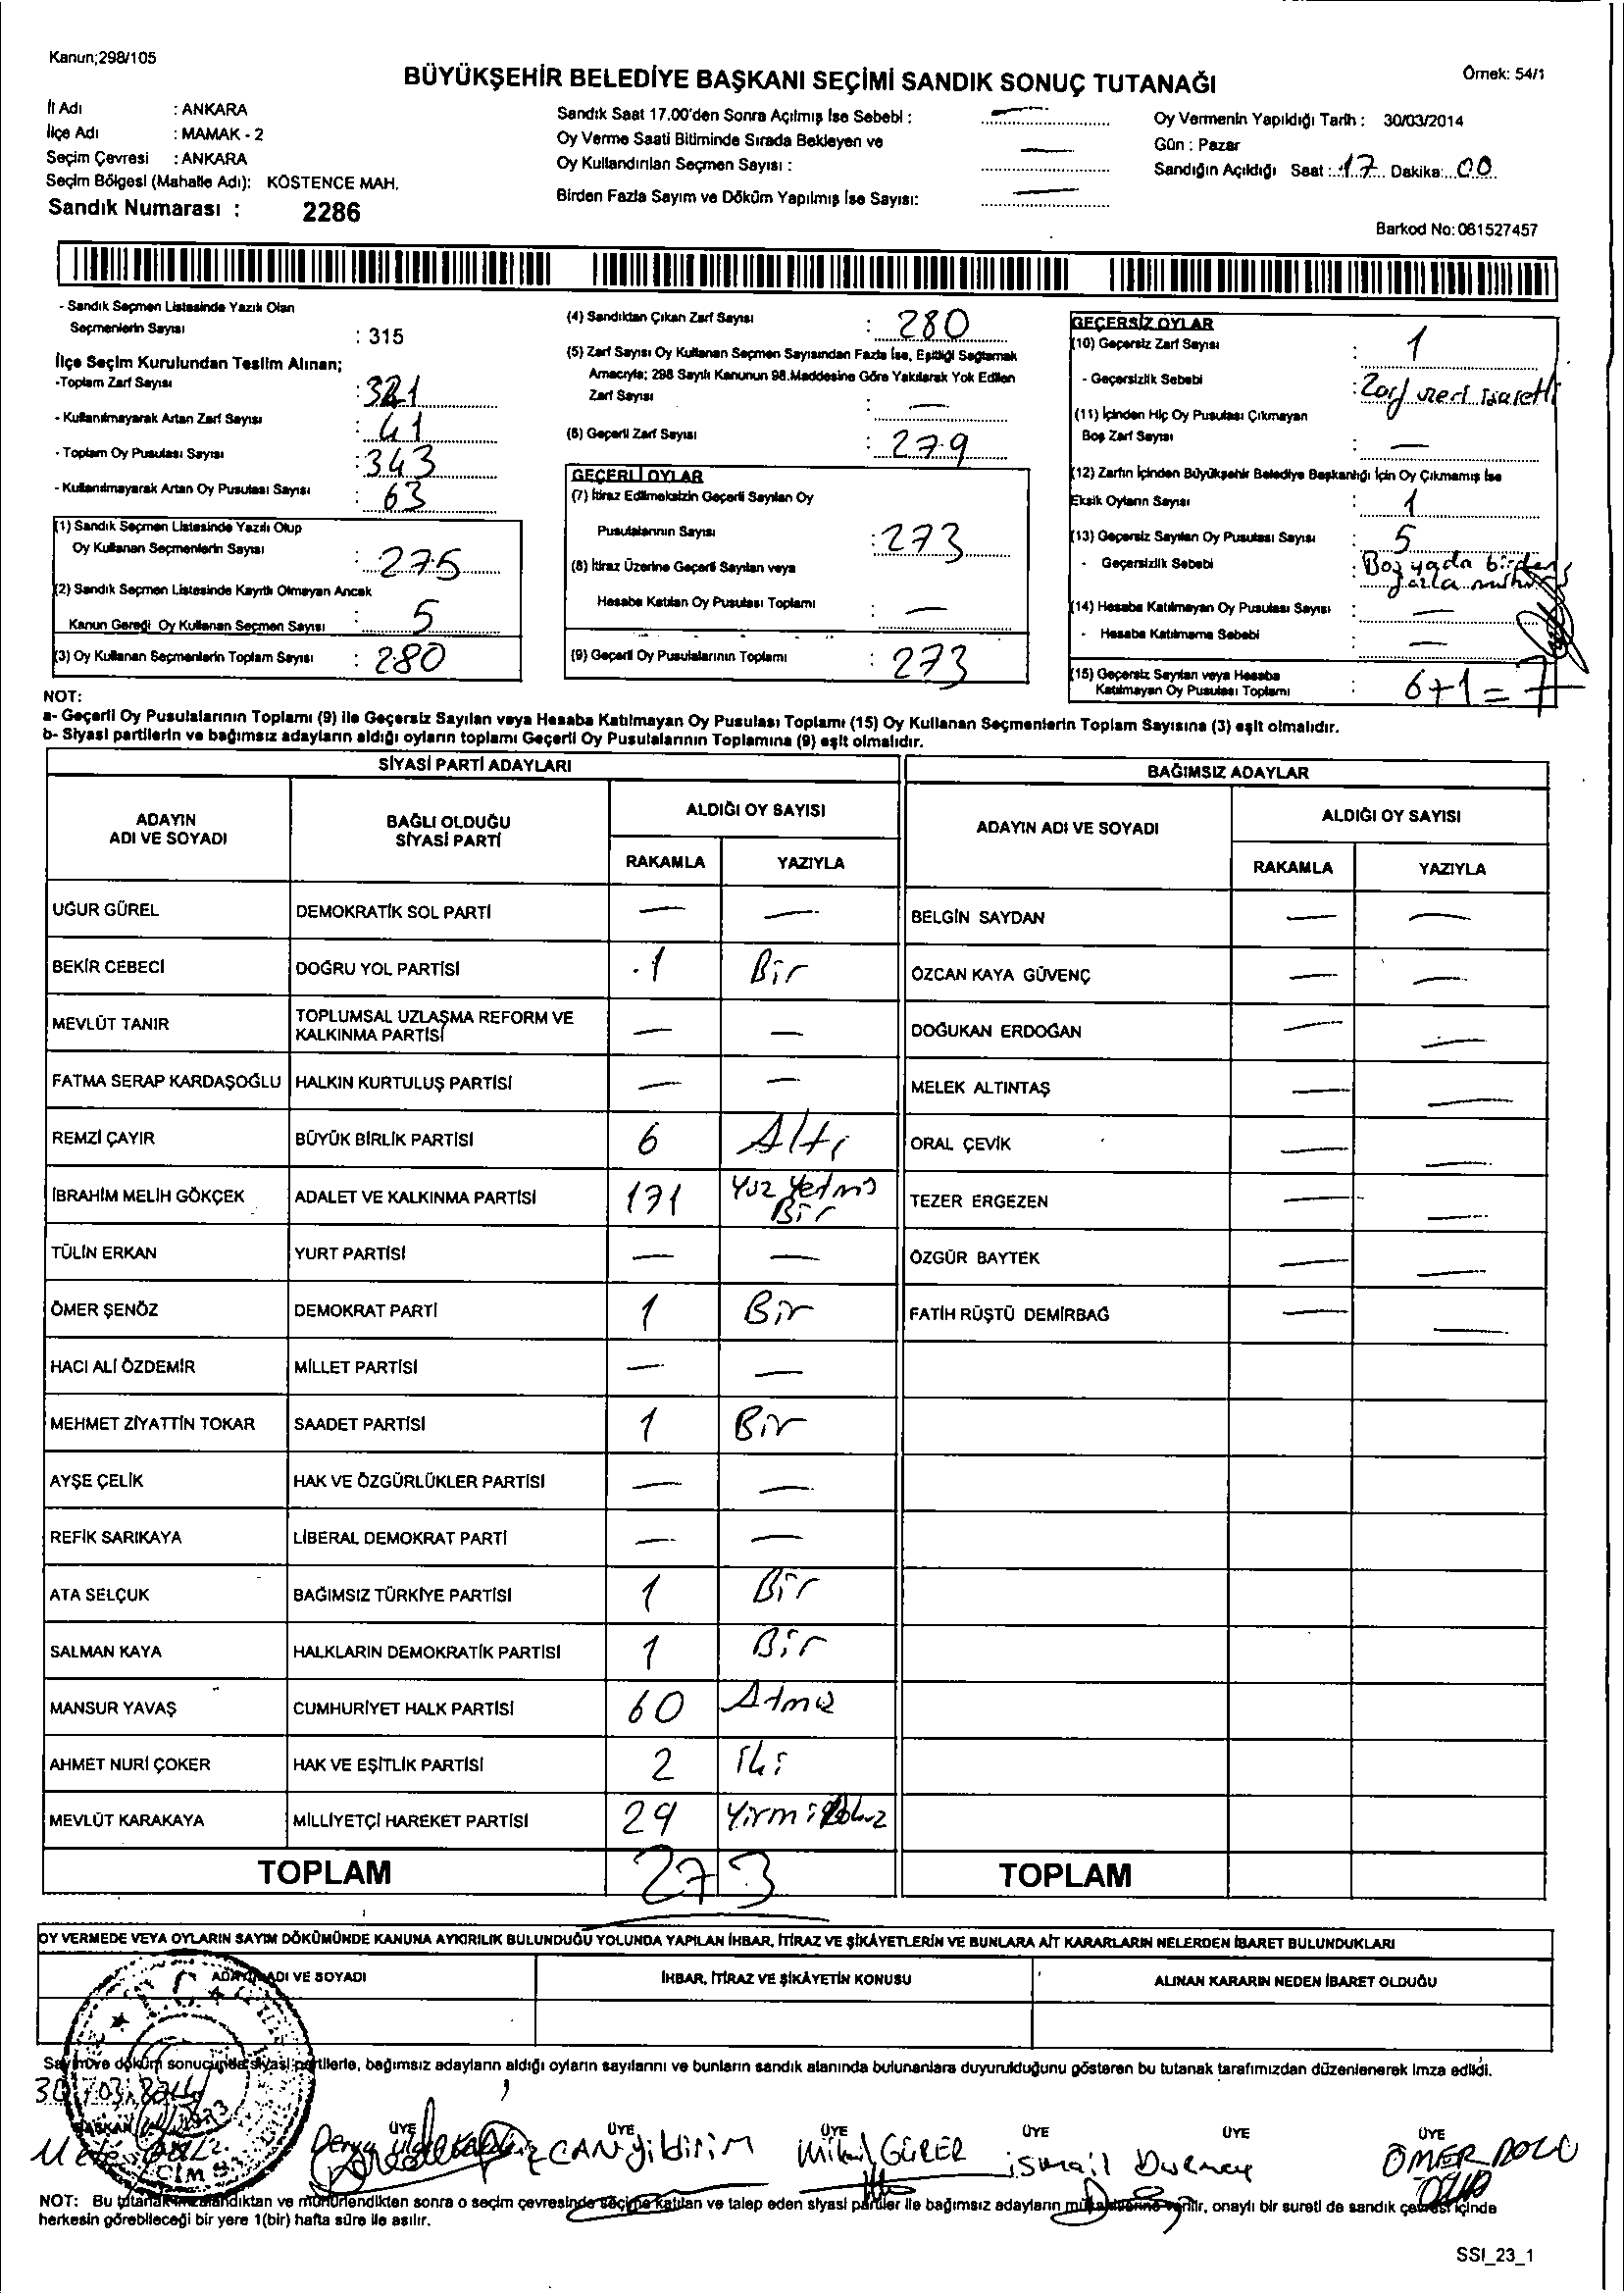 Kanun;298/105
BÜYÜKŞEHİR BELEDİYE BAŞKANI SEÇİMİ SANDIK SONUÇ TUTANAĞI
Örnek: 54/1
İl Adı : ANKARA
İlçe Adı : MAMAK - 2
Seçim Çevresi : ANKARA
Seçim Bölgesi (Mahalle Adı): KÖSTENCE MAH.
Sandık Numarası : 2286
Sandık Saat 17.00'den Sonra Açılmış İse Sebebi : —
Oy Verme Saati Bitiminde Sırada Bekleyen ve
Oy Kullandırılan Seçmen Sayısı : —
Birden Fazla Sayım ve Döküm Yapılmış İse Sayısı: —
Oy Vermenin Yapıldığı Tarih : 30/03/2014
Gün : Pazar
Sandığın Açıldığı Saat : 17 Dakika: 00
Barkod No: 061527457
- Sandık Seçmen Listesinde Yazılı Olan
Seçmenlerin Sayısı : 315
İlçe Seçim Kurulundan Teslim Alınan;
-Toplam Zarf Sayısı : 321
- Kullanılmayarak Artan Zarf Sayısı : 41
- Toplam Oy Pusulası Sayısı : 343
- Kullanılmayarak Artan Oy Pusulası Sayısı : 63
(1) Sandık Seçmen Listesinde Yazılı Olup
Oy Kullanan Seçmenlerin Sayısı : 275
(2) Sandık Seçmen Listesinde Kayıtlı Olmayan Ancak
Kanun Gereği Oy Kullanan Seçmen Sayısı : 5
(3) Oy Kullanan Seçmenlerin Toplam Sayısı : 280
(4) Sandıktan Çıkan Zarf Sayısı : 280
(5) Zarf Sayısı Oy Kullanan Seçmen Sayısından Fazla İse, Eşitliği Sağlamak
Amacıyla; 298 Sayılı Kanunun 98.Maddesine Göre Yakılarak Yok Edilen
Zarf Sayısı : —
(6) Geçerli Zarf Sayısı : 279
GEÇERLİ OYLAR
(7) İtiraz Edilmeksizin Geçerli Sayılan Oy
Pusulalarının Sayısı : 273
(8) İtiraz Üzerine Geçerli Sayılan veya
Hesaba Katılan Oy Pusulası Toplamı : —
(9) Geçerli Oy Pusulalarının Toplamı : 273
GEÇERSİZ OYLAR
(10) Geçersiz Zarf Sayısı : 1
- Geçersizlik Sebebi : Zarf üzeri işaretli
(11) İçinden Hiç Oy Pusulası Çıkmayan
Boş Zarf Sayısı : —
(12) Zarfın İçinden Büyükşehir Belediye Başkanlığı İçin Oy Çıkmamış İse
Eksik Oyların Sayısı : 1
(13) Geçersiz Sayılan Oy Pusulası Sayısı : 5
- Geçersizlik Sebebi : Boş yada birden
fazla mühür
(14) Hesaba Katılmayan Oy Pusulası Sayısı : —
- Hesaba Katılmama Sebebi : —
(15) Geçersiz Sayılan veya Hesaba
Katılmayan Oy Pusulası Toplamı : 6+1=7
NOT:
a- Geçerli Oy Pusulalarının Toplamı (9) ile Geçersiz Sayılan veya Hesaba Katılmayan Oy Pusulası Toplamı (15) Oy Kullanan Seçmenlerin Toplam Sayısına (3) eşit olmalıdır.
b- Siyasi partilerin ve bağımsız adayların aldığı oyların toplamı Geçerli Oy Pusulalarının Toplamına (9) eşit olmalıdır.
SİYASİ PARTİ ADAYLARI
ADAYIN ADI VE SOYADI BAĞLI OLDUĞU SİYASİ PARTİ ALDIĞI OY SAYISI
RAKAMLA YAZIYLA
UĞUR GÜREL DEMOKRATİK SOL PARTİ — —
BEKİR CEBECİ DOĞRU YOL PARTİSİ 1 Bir
MEVLÜT TANIR TOPLUMSAL UZLAŞMA REFORM VE KALKINMA PARTİSİ — —
FATMA SERAP KARDAŞOĞLU HALKIN KURTULUŞ PARTİSİ — —
REMZİ ÇAYIR BÜYÜK BİRLİK PARTİSİ 6 Altı
İBRAHİM MELİH GÖKÇEK ADALET VE KALKINMA PARTİSİ 171 Yüz Yetmiş Bir
TÜLİN ERKAN YURT PARTİSİ — —
ÖMER ŞENÖZ DEMOKRAT PARTİ 1 Bir
HACI ALİ ÖZDEMİR MİLLET PARTİSİ — —
MEHMET ZİYATTİN TOKAR SAADET PARTİSİ 1 Bir
AYŞE ÇELİK HAK VE ÖZGÜRLÜKLER PARTİSİ — —
REFİK SARIKAYA LİBERAL DEMOKRAT PARTİ — —
ATA SELÇUK BAĞIMSIZ TÜRKİYE PARTİSİ 1 Bir
SALMAN KAYA HALKLARIN DEMOKRATİK PARTİSİ 1 Bir
MANSUR YAVAŞ CUMHURİYET HALK PARTİSİ 60 Atmış
AHMET NURİ ÇOKER HAK VE EŞİTLİK PARTİSİ 2 iki
MEVLÜT KARAKAYA MİLLİYETÇİ HAREKET PARTİSİ 29 Yirmi Dokuz
TOPLAM 273
BAĞIMSIZ ADAYLAR
ADAYIN ADI VE SOYADI ALDIĞI OY SAYISI
RAKAMLA YAZIYLA
BELGİN SAYDAN — —
ÖZCAN KAYA GÜVENÇ — —
DOĞUKAN ERDOĞAN — —
MELEK ALTINTAŞ — —
ORAL ÇEVİK — —
TEZER ERGEZEN — —
ÖZGÜR BAYTEK — —
FATİH RÜŞTÜ DEMİRBAĞ — —
TOPLAM
OY VERMEDE VEYA OYLARIN SAYIM DÖKÜMÜNDE KANUNA AYKIRILIK BULUNDUĞU YOLUNDA YAPILAN İHBAR, İTİRAZ VE ŞİKÂYETLERİN VE BUNLARA AİT KARARLARIN NELERDEN İBARET BULUNDUKLARI
ADAYIN ADI VE SOYADI İHBAR, İTİRAZ VE ŞİKÂYETİN KONUSU ALINAN KARARIN NEDEN İBARET OLDUĞU
Sayım ve döküm sonucunda siyasi partilerle, bağımsız adayların aldığı oyların sayılarını ve bunların sandık alanında bulunanlara duyurulduğunu gösteren bu tutanak tarafımızdan düzenlenerek imza edildi.
30/03/2014
BAŞKAN ÜYE ÜYE ÜYE ÜYE ÜYE ÜYE
Derya CAN Yıldırım Mikail GÜRER İsmail Durmaz ÖMER
NOT: Bu tutanak imzalandıktan ve mühürlendikten sonra o seçim çevresinde seçime katılan ve talep eden siyasi partiler ile bağımsız adayların müşahitlerine verilir, onaylı bir sureti de sandık çevresi içinde
herkesin görebileceği bir yere 1(bir) hafta süre ile asılır.
SSI_23_1